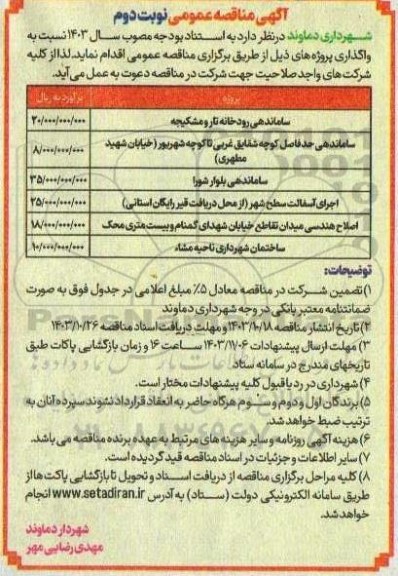 آگهی مناقصه عمومی نوبت دوم
شهرداری دماوند درنظر دارد به استناد بودجه مصوب سال ۱۴۰۳ نسبت به
واگذاری پروژه‌های ذیل از طریق برگزاری مناقصه عمومی اقدام نماید. لذا از کلیه
شرکت های واجد صلاحیت جهت شرکت در مناقصه دعوت به عمل می آید.
پروژه برآورد به ریال
ساماندهی رودخانه تار و مشکیجه ۲۰/۰۰۰/۰۰۰/۰۰۰
ساماندهی حدفاصل کوچه شقایق غربی تا کوچه شهرپور (خیابان شهید
مطهری) ۸/۰۰۰/۰۰۰/۰۰۰
ساماندهی بلوار شورا ۳۵/۰۰۰/۰۰۰/۰۰۰
اجرای آسفالت سطح شهر (از محل دریافت قیر رایگان استانی) ۲۵/۰۰۰/۰۰۰/۰۰۰
اصلاح هندسی میدان تقاطع خیابان شهدای گمنام و بیست متری محک ۱۸/۰۰۰/۰۰۰/۰۰۰
ساختمان شهرداری ناحیه مشاء ۱۰/۰۰۰/۰۰۰/۰۰۰
توضیحات:
۱) تضمین شرکت در مناقصه معادل ۵٪ مبلغ اعلامی در جدول فوق به صورت
ضمانتنامه معتبر بانکی در وجه شهرداری دماوند
۲) تاریخ انتشار مناقصه ۱۴۰۳/۱۰/۱۸ و مهلت دریافت اسناد مناقصه ۱۴۰۳/۱۰/۲۶
۳) مهلت ارسال پیشنهادات ۱۴۰۳/۱۱/۰۶ ساعت ۱۶ و زمان بازگشایی پاکات طبق
تاریخهای مندرج در سامانه ستاد
۴) شهرداری در رد یا قبول کلیه پیشنهادات مختار است.
۵) برندگان اول و دوم و سوم هرگاه حاضر به انعقاد قرارداد نشوند سپرده آنان به
ترتیب ضبط خواهد شد.
۶) هزینه آگهی روزنامه و سایر هزینه های مرتبط به عهده برنده مناقصه می باشد.
۷) سایر اطلاعات و جزئیات در اسناد مناقصه قید گردیده است.
۸) کلیه مراحل برگزاری مناقصه از دریافت اسناد و تحویل تا بازگشایی پاکت ها از
طریق سامانه الکترونیکی دولت (ستاد) به آدرس www.setadiran.ir انجام
خواهد شد.
شهردار دماوند
مهدی رضایی مهر